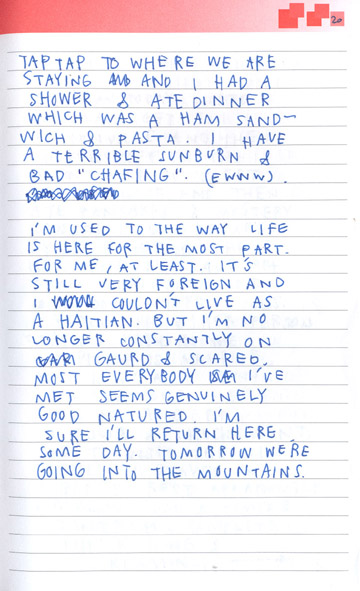 20
TAP TAP TO WHERE WE ARE
STAYING AND I HAD A
SHOWER & ATE DINNER
WHICH WAS A HAM SAND-
WICH & PASTA. I HAVE
A TERRIBLE SUNBURN &
BAD "CHAFING". (EWWW).
I'M USED TO THE WAY LIFE
IS HERE FOR THE MOST PART.
FOR ME, AT LEAST. IT'S
STILL VERY FOREIGN AND
I COULDN'T LIVE AS
A HAITIAN. BUT I'M NO
LONGER CONSTANTLY ON
GAURD & SCARED.
MOST EVERYBODY I'VE
MET SEEMS GENUINELY
GOOD NATURED. I'M
SURE I'LL RETURN HERE
SOME DAY. TOMORROW WE'RE
GOING INTO THE MOUNTAINS.